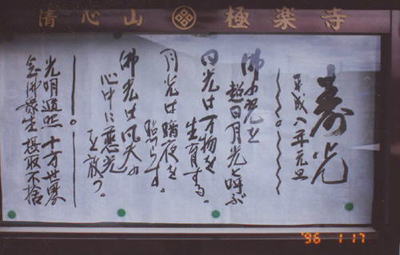 清心山 極楽寺
寿光
平成八年元旦
佛の光を
超日月光と呼ぶ
日光は万物を
生育する。
月光は暗夜を
照らす。
佛光は凡夫の
心中に慈光
を放つ。
光明遍照 十方世界
念佛衆生 摂取不捨
'96 1 17